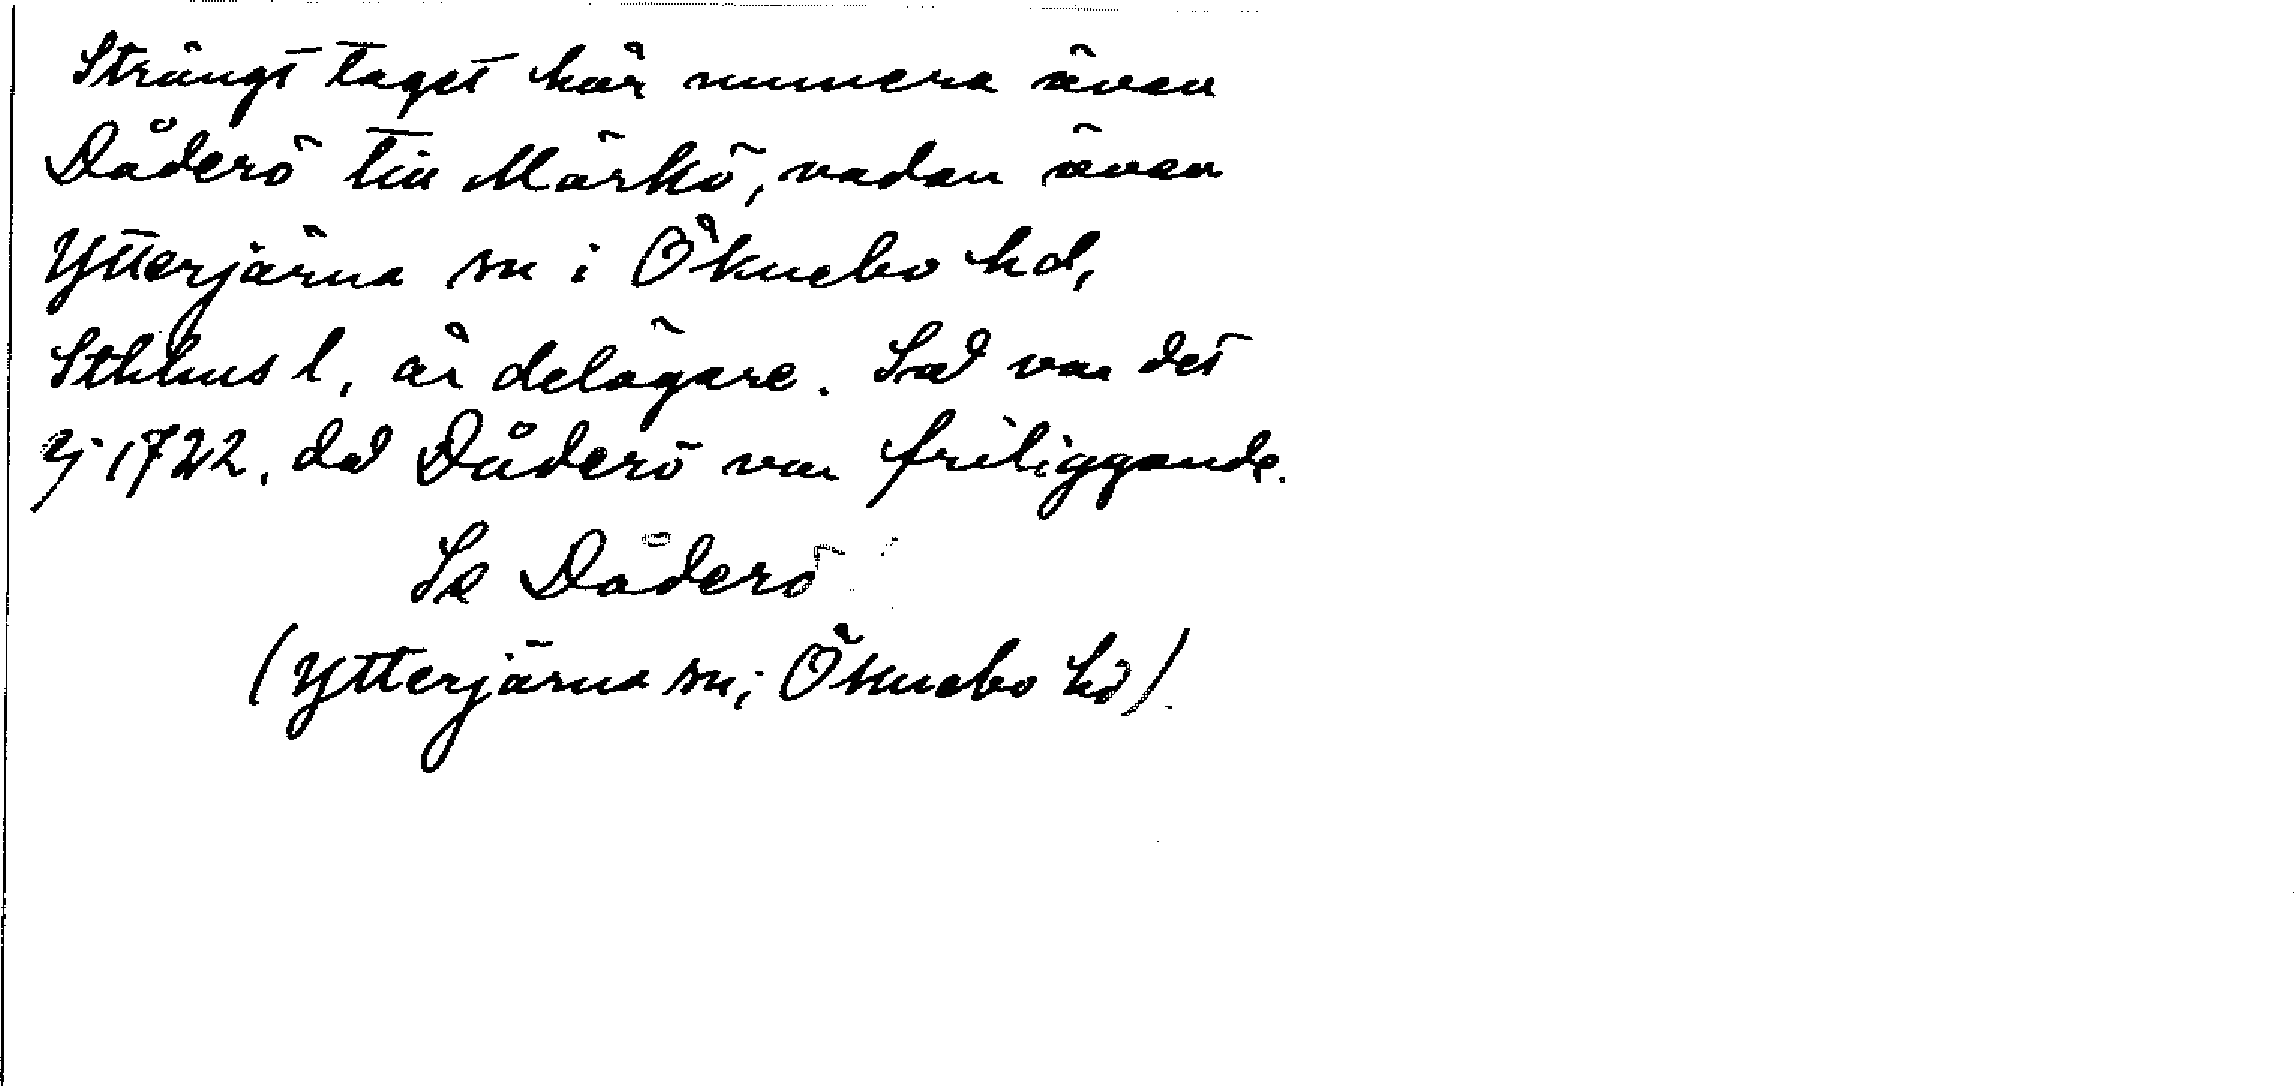 Strängt taget hör numera även
Dåderö till Mörkö, vadan även
Ytterjärna sn i Öknebo hd,
Sthlms l, är delägare. Så var det
ej 1722, då Dåderö var friliggande.
Se Dåderö
(Ytterjärna sn; Öknebo hd).